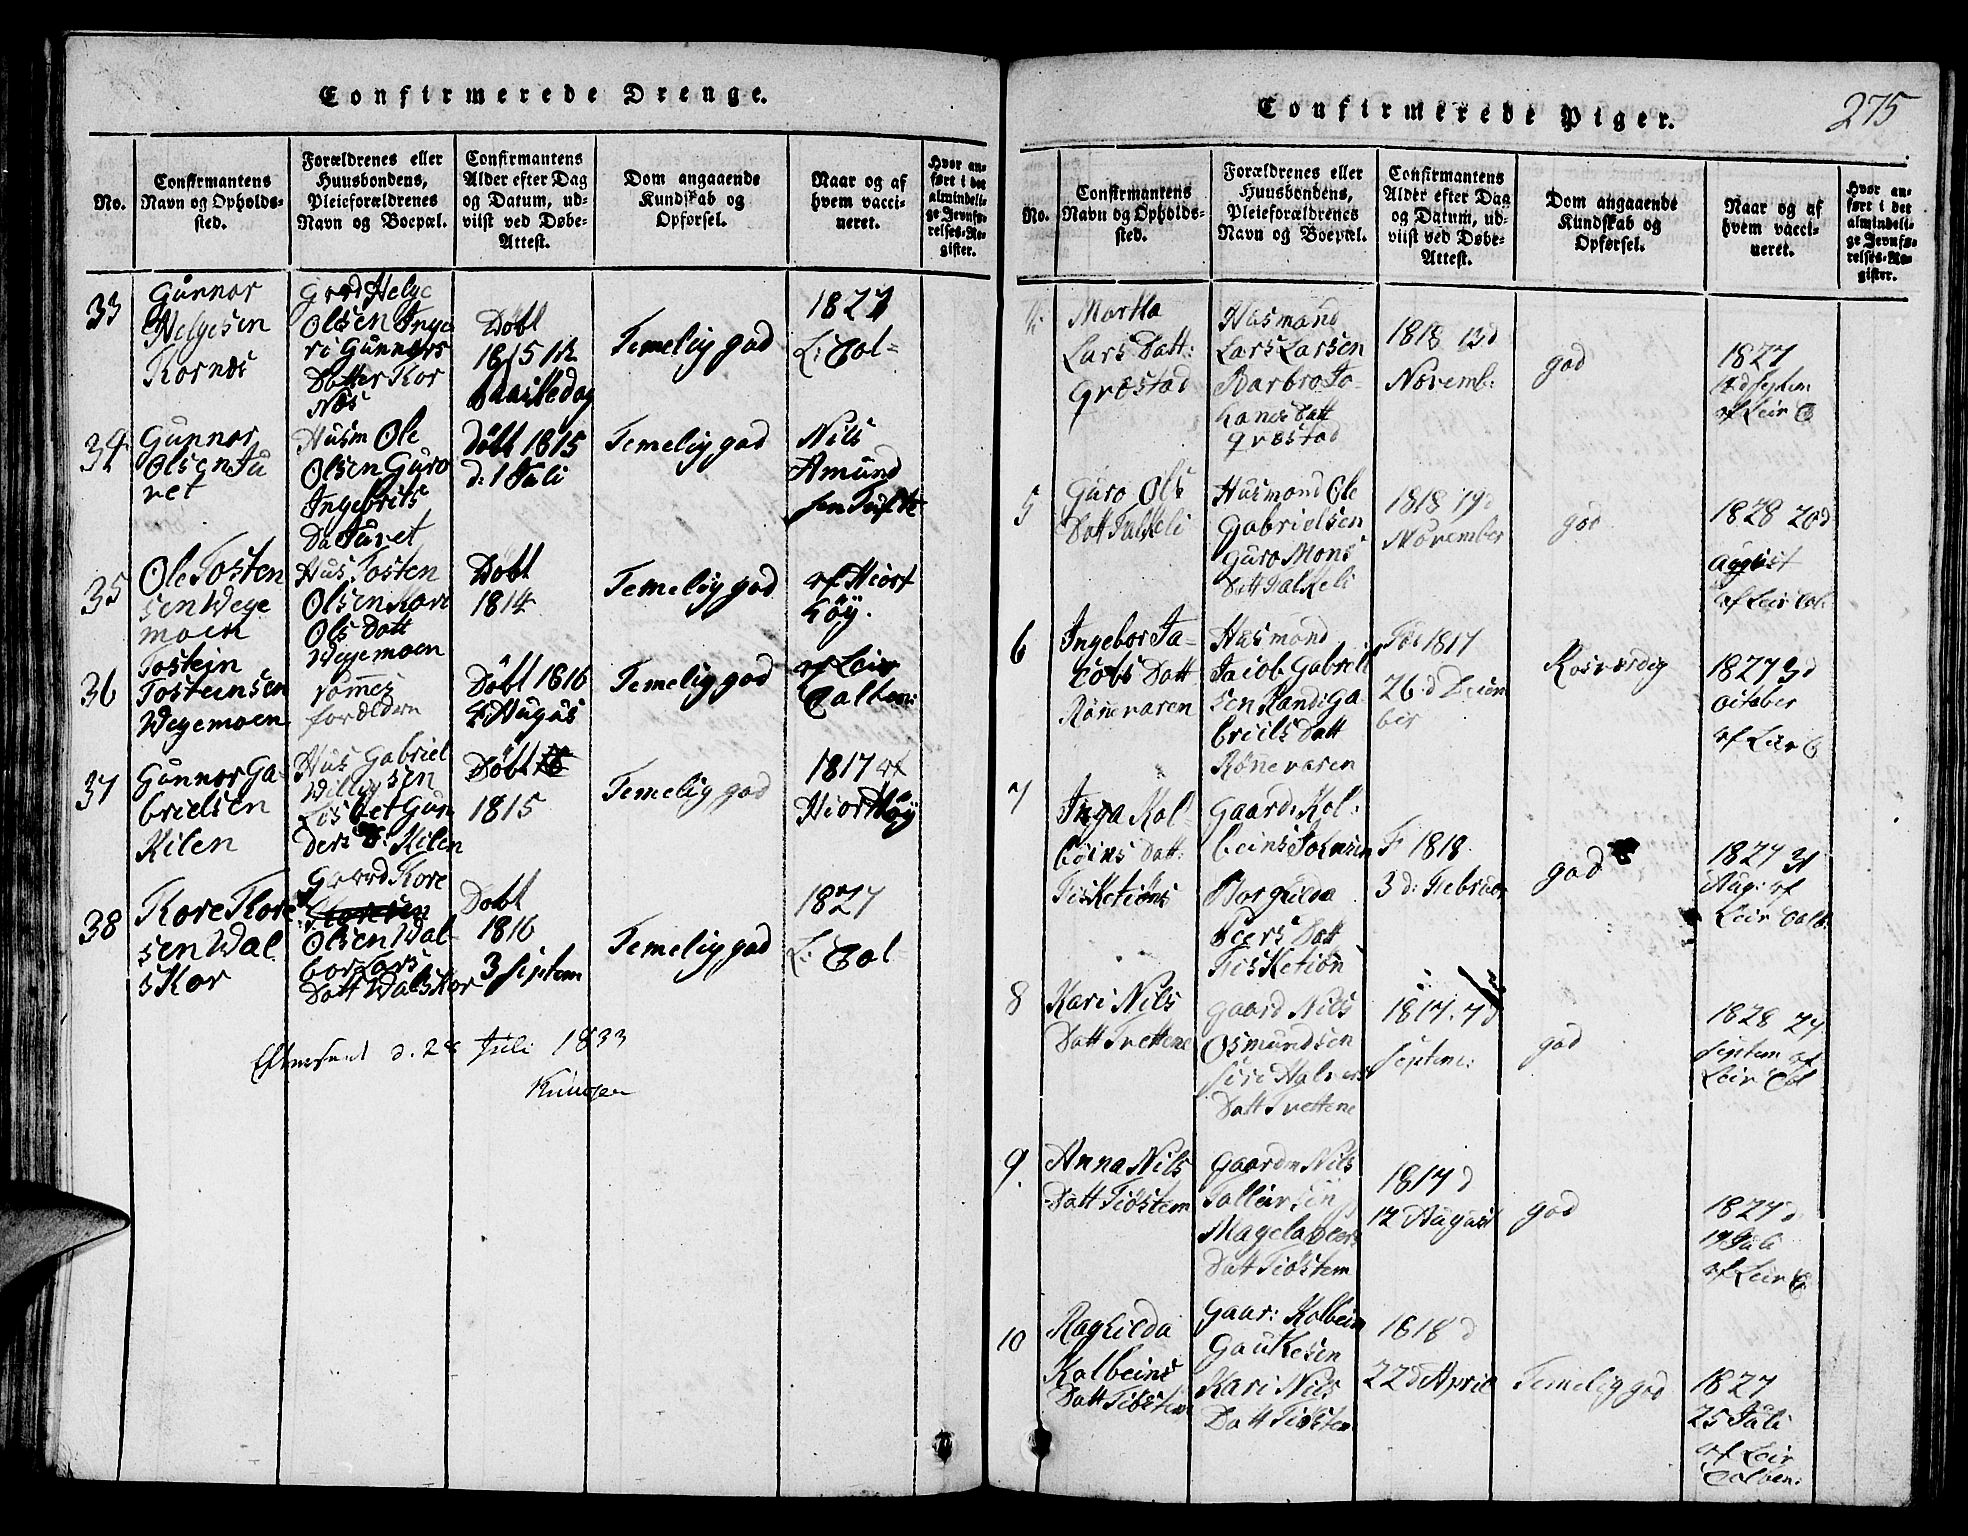 Confirmerede Drenge.
No.
Confirmantens
Navn og Opholds-
sted.
Forældrenes eller
Huusbondens,
Pleieforældrenes
Navn og Boepæl.
Confirmantens
Alder efter Dag
og Datum, ud-
viist ved Døbe-
Attest.
Dom angaaende
Kundskab og
Opførsel.
Naar og af
hvem vacci-
neret.
Hvor an-
ført i det
almindeli-
ge Jevnfø-
relses-Re-
gister.
33
Gunnar
Helgesen
Kornes
Helge
Olsen Inge
ri Gunnars
Datter Kor
Nes
Døbt
1815
Paaskedag
Temelig god
1827
L: Col-
34
Gunnar
Olsen Ju
vet
Husm Ole
Olsen Guro
Ingebrits
Da Juvet
Døbt 1815
d: 1 Juli
Temelig god
Nils
Amund
sen Tufte
35
Ole Tosten
sen Wege
moen
Hus Tosten
Olsen Kari
Ols Datt
Wegemoen
Døbt
1814
Temelig god
af Hiort
høy.
36
Tostein
Tosteinsen
Wegemoen
forældre
Døbt 1816
4 Augus
Temelig god
af Leir
Calten:
37
Gunnar Ga-
brielsen
Kilen
Hus Gabriel
Willigsen
Lisbet Gun
ders D: Kilen
Døbt
1815
Temelig god
1817 af
Hiorthøy
38
Tore Tore
sen Wal
skor
Tore
Olsen Wal-
bor Lars
Datt Walskor
Døbt
1816
3 Septem
Temelig god
1827
L: Col-
d. 28 Juli 1833
Knudsen
Confirmerede Piger.
275
No.
Confirmantens
Navn og Opholds-
sted.
Forældrenes eller
Huusbondens,
Pleieforældrenes
Navn og Boepæl.
Confirmantens
Alder efter Dag
og Datum, ud-
viist ved Døbe-
Attest.
Dom angaaende
Kundskab og
Opførsel.
Naar og af
hvem vacci-
neret.
Hvor an-
ført i det
almindeli-
ge Jevnfø-
relses-Re-
gister.
4.
Martha
Lars Datt:
Græstad
Husmand
Lars Larsen
Barbro Jo-
hanes Datt
Græstad
1818 13d
Novemb:
god
1827
12d Septem
af Leir C
5
Guro Ols
Datt Falkeli
Husmand Ole
Gabrielsen
Guro Mons
Datt Falkeli
1818 19d
November
god
1828 20d
August
af Leir Col:
6
Ingebor Ja-
cobs Datt
Rønevaren
Husmand
Jacob Gabriel
sen Randi Ga-
briels Datt
Rønevaren
Fø: 1817
26:d Decem
ber
Rosværdig
1827 3d
October
af Leir C
7
Inga Kol-
beins Datt:
Fisketiøns
Gaard: Kol:
beins Johnsen
Borgilda
Peers Datt
Fisketiøn
F 1818
3 d: Februar
god
1827 31
Aug: af
Leir Colb:
8
Kari Nils
Datt Trettene
Gaard Nils
Osmundsen
Siri Halvers
Datt Trettene
1817. 7d
Septem:
god
1828 27
Septem af
Leir Col
9.
Anna Nils
Datt Tiøstem
Gaardm Nils
Tolleivsen
Magela Peers
Datt Tiøstem
1817 d
12 August
god
1827 d
19 Juli
af Leir C
10
Raghilda
Kolbeins
Datt Tiøstem
Gaar: Kolbein
Gaukesen
Kari Nils
Datt Tiøstem
1818 d
22d April
Temelig god
1827
25 Juli
af Leir
Colben: